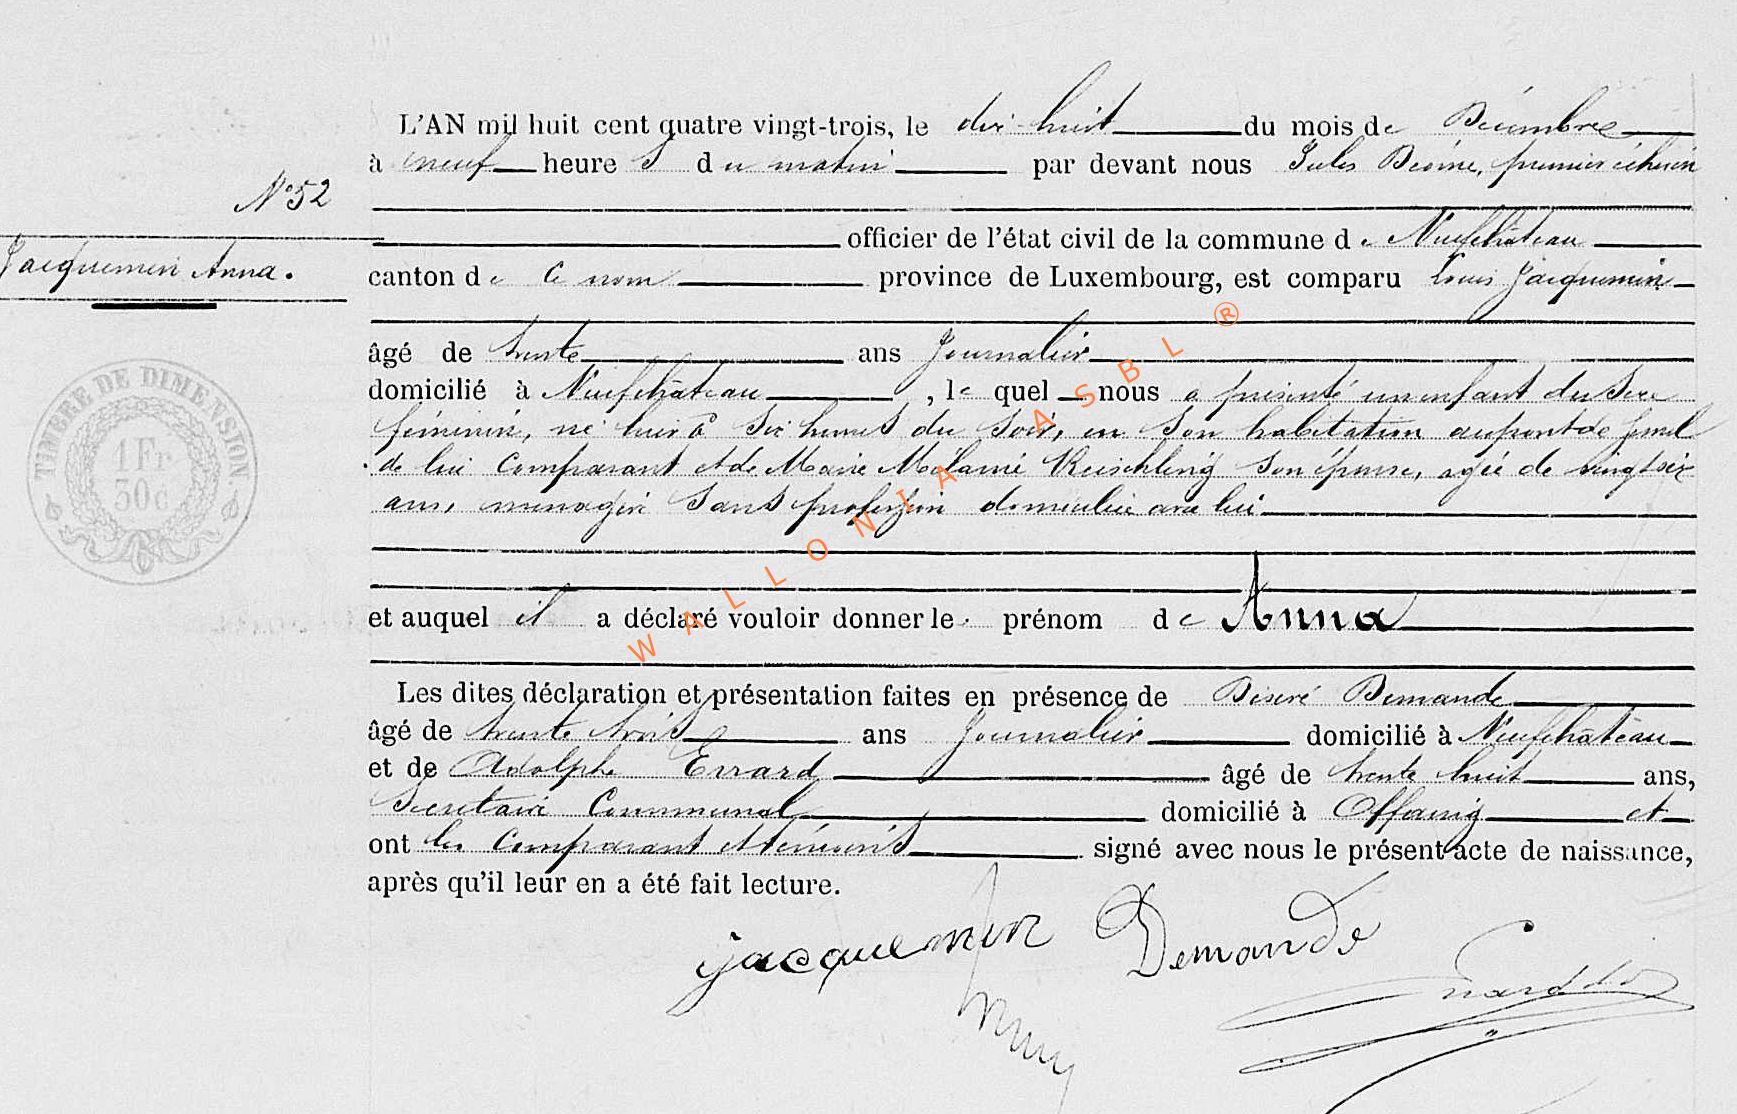 L'AN mil huit cent quatre vingt-trois, le dix-huit du mois de Décembre
à neuf heures du matin par devant nous Jules premier échevin
N° 52
officier de l'état civil de la commune de Neufchâteau
Jacquemin Anna.
canton de ce nom province de Luxembourg, est comparu Louis Jacquemin
âgé de trente ans Journalier
domicilié à Neufchâteau, le quel nous a présenté un enfant du sexe
féminin, né hier à six heures du soir, en son habitation au pont de
de lui comparant et de Marie Mélanie son épouse, agée de vingt six
ans, menagère sans profession domiciliée avec lui
et auquel il a déclaré vouloir donner le prénom de Anna
Les dites déclaration et présentation faites en présence de Désiré Demande
âgé de trente trois ans Journalier domicilié à Neufchâteau
et de Adolphe Errard âgé de trente huit ans,
Secretaire Communal domicilié à Offaing et
ont les Comparant et témoins signé avec nous le présent acte de naissance,
après qu'il leur en a été fait lecture.
jacquemin Demande
TIMBRE DE DIMENSION.
1Fr
30c
WALLONIA ASBL ®